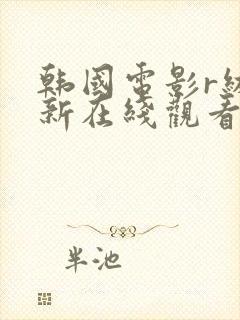 韩國電影r級
新在綫觀看
半池